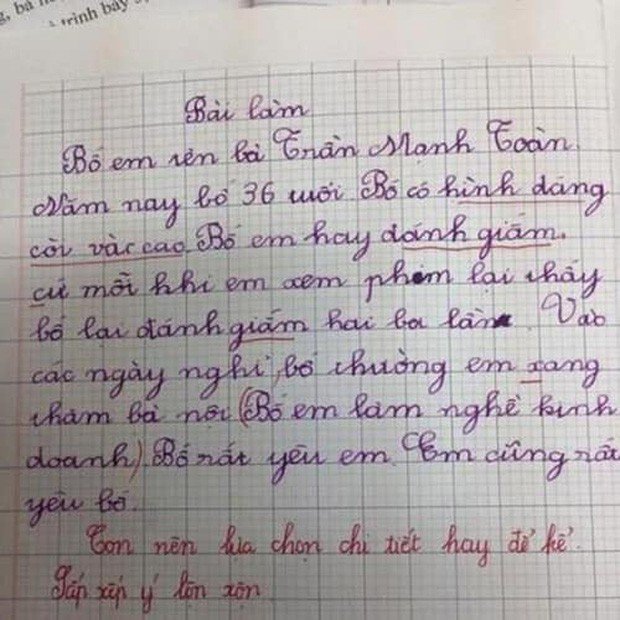 g, bà n
trình bày
Bài làm
Bố em tên là Trần Mạnh Toàn.
Năm nay bố 36 tuổi Bố có hình dáng
còi và cao. Bố em hay đánh giấm.
cứ mỗi khi em xem phim lại thấy
bố lại đánh giấm hai ba lần. Vào
các ngày nghỉ, bố thường em xang
thăm bà nội (Bố em làm nghề kinh
doanh). Bố rất yêu em. Em cũng rất
yêu bố.
Con nên lựa chọn chi tiết hay để kể.
Sắp xếp ý lộn xộn